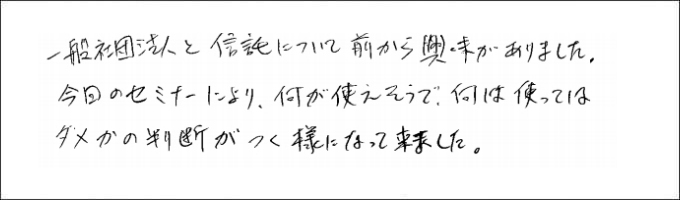 一般社団法人と信託について前から興味がありました。
今回のセミナーにより、何が使えそうで、何は使っては
ダメかの判断がつく様になって来ました。